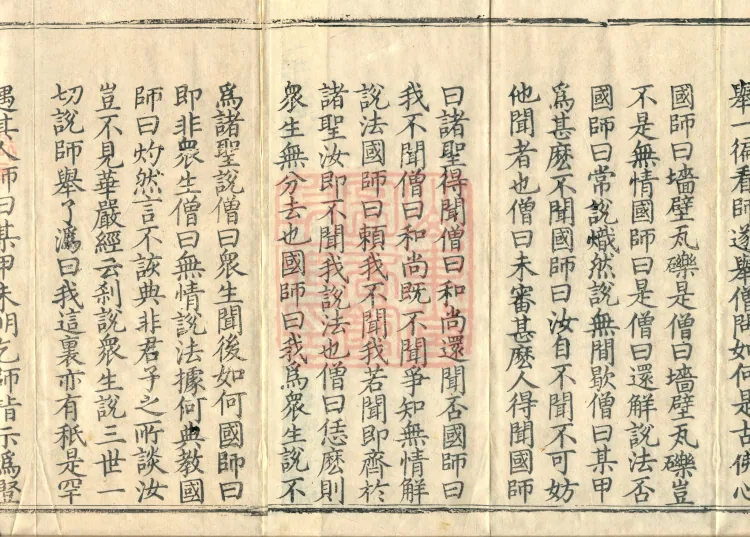 舉一徧看師遂舉僧問如何是古佛心
國師曰墻壁瓦礫是僧曰墻壁瓦礫豈
不是無情國師曰是僧曰還解說法否
國師曰常說熾然說無間歇僧曰某甲
爲甚麽不聞國師曰汝自不聞不可妨
他聞者也僧曰未審甚麽人得聞國師
曰諸聖得聞僧曰和尚還聞否國師曰
我不聞僧曰和尚既不聞爭知無情解
說法國師曰賴我不聞我若聞即齊於
諸聖汝即不聞我說法也僧曰恁麽則
衆生無分去也國師曰我爲衆生說不
爲諸聖說僧曰衆生聞後如何國師曰
即非衆生僧曰無情說法據何典教國
師曰灼然言不該典非君子之所談汝
豈不見華嚴經云刹說衆生說三世一
切說師舉了潙曰我這裏亦有秖是罕
遇其人師曰某甲未明乞師指示潙豎